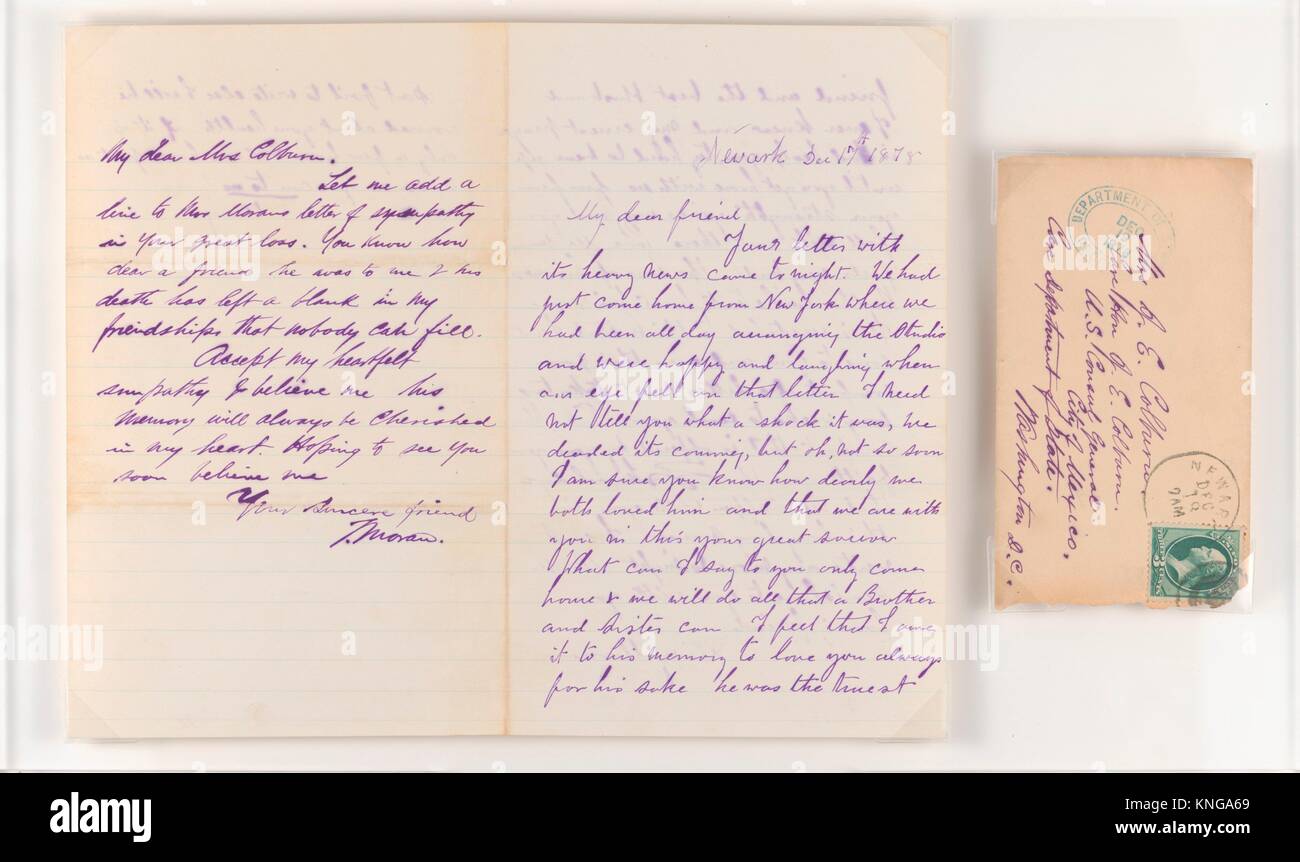 My dear Mrs Colburn.
Let me add a
line to Mrs Morans letter of sympathy
in your great loss. You know how
dear a friend he was to me & his
death has left a blank in my
friendships that nobody can fill.
Accept my heartfelt
sympathy & believe me his
memory will always be cherished
in my heart. Hoping to see you
soon believe me
Your Sincere friend
T. Moran.
Newark Dec 17th 1878
My dear friend
Your letter with
its heavy news came to night. We had
just come home from New York where we
had been all day arranging the Studio
and were happy and laughing when
our eye fell on that letter I need
not tell you what a shock it was, we
dreaded its coming, but oh, not so soon
I am sure you know how dearly we
both loved him and that we are with
you in this your great sorrow
What can I say to you only come
home & we will do all that a Brother
and sister can I feel that I owe
it to his memory to love you always
for his sake he was the truest
DEPARTMENT OF
DEC
Mrs D. E. Colburn.
Care Hon D. E. Colburn.
U.S. Consul General
City of Mexico.
Care department of State.
Washington D.C.
NEWARK
DEC
9AM
alamy
alamy
Image ID: KNGA69
www.alamy.com